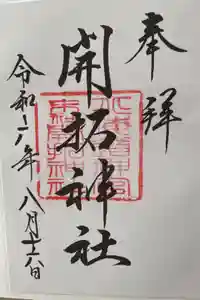 奉拝
開拓神社
北海道神宮
末社開拓神社
令和六年八月十